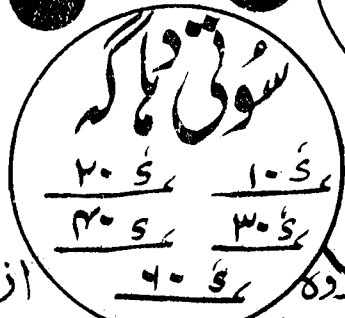 سُوتی دھاگہ
۱۰ s، ۲۰ s،
۳۰ s، ۴۰ s،
۶۰ s،